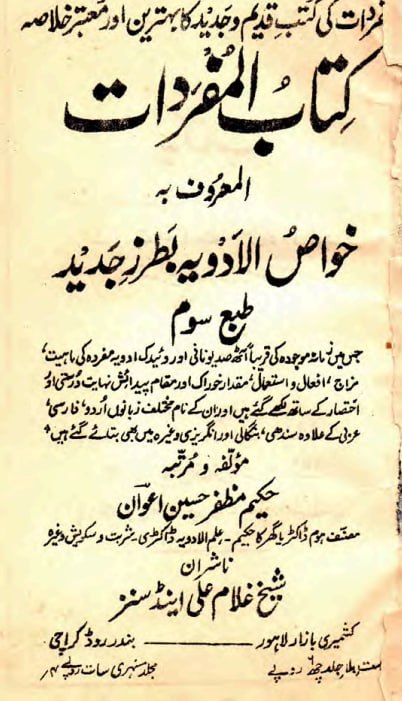 مفردات کی کتب قدیم و جدید کا بہترین اور معتبر خلاصہ
کتابُ المُفردات
المعروف بہ
خواصُ الادویہ بطرزِ جدید
طبع سوم
جس میں زمانہ موجودہ کی قریباً آٹھ صد یونانی اور ویدک ادویہ مفردہ کی ماہیت،
مزاج، افعال و استعمال، مقدار خوراک اور مقام پیدائش نہایت درستی اور
اختصار کے ساتھ لکھے گئے ہیں اور ان کے نام مختلف زبانوں اُردو، فارسی،
عربی کے علاوہ سندھی، بنگالی اور انگریزی وغیرہ میں بھی بتائے گئے ہیں
مؤلفہ و مرتبہ
حکیم مظفر حسین اعوان
مصنف ہوم ڈاکٹر یا گھر کا حکیم - علم الادویہ ڈاکٹری - شربت و سکویش وغیرہ
ناشران
شیخ غلام علی اینڈ سنز
کشمیری بازار لاہور ــــــــ بندر روڈ کراچی
بلا جلد چھ روپے مجلد سنہری سات روپے